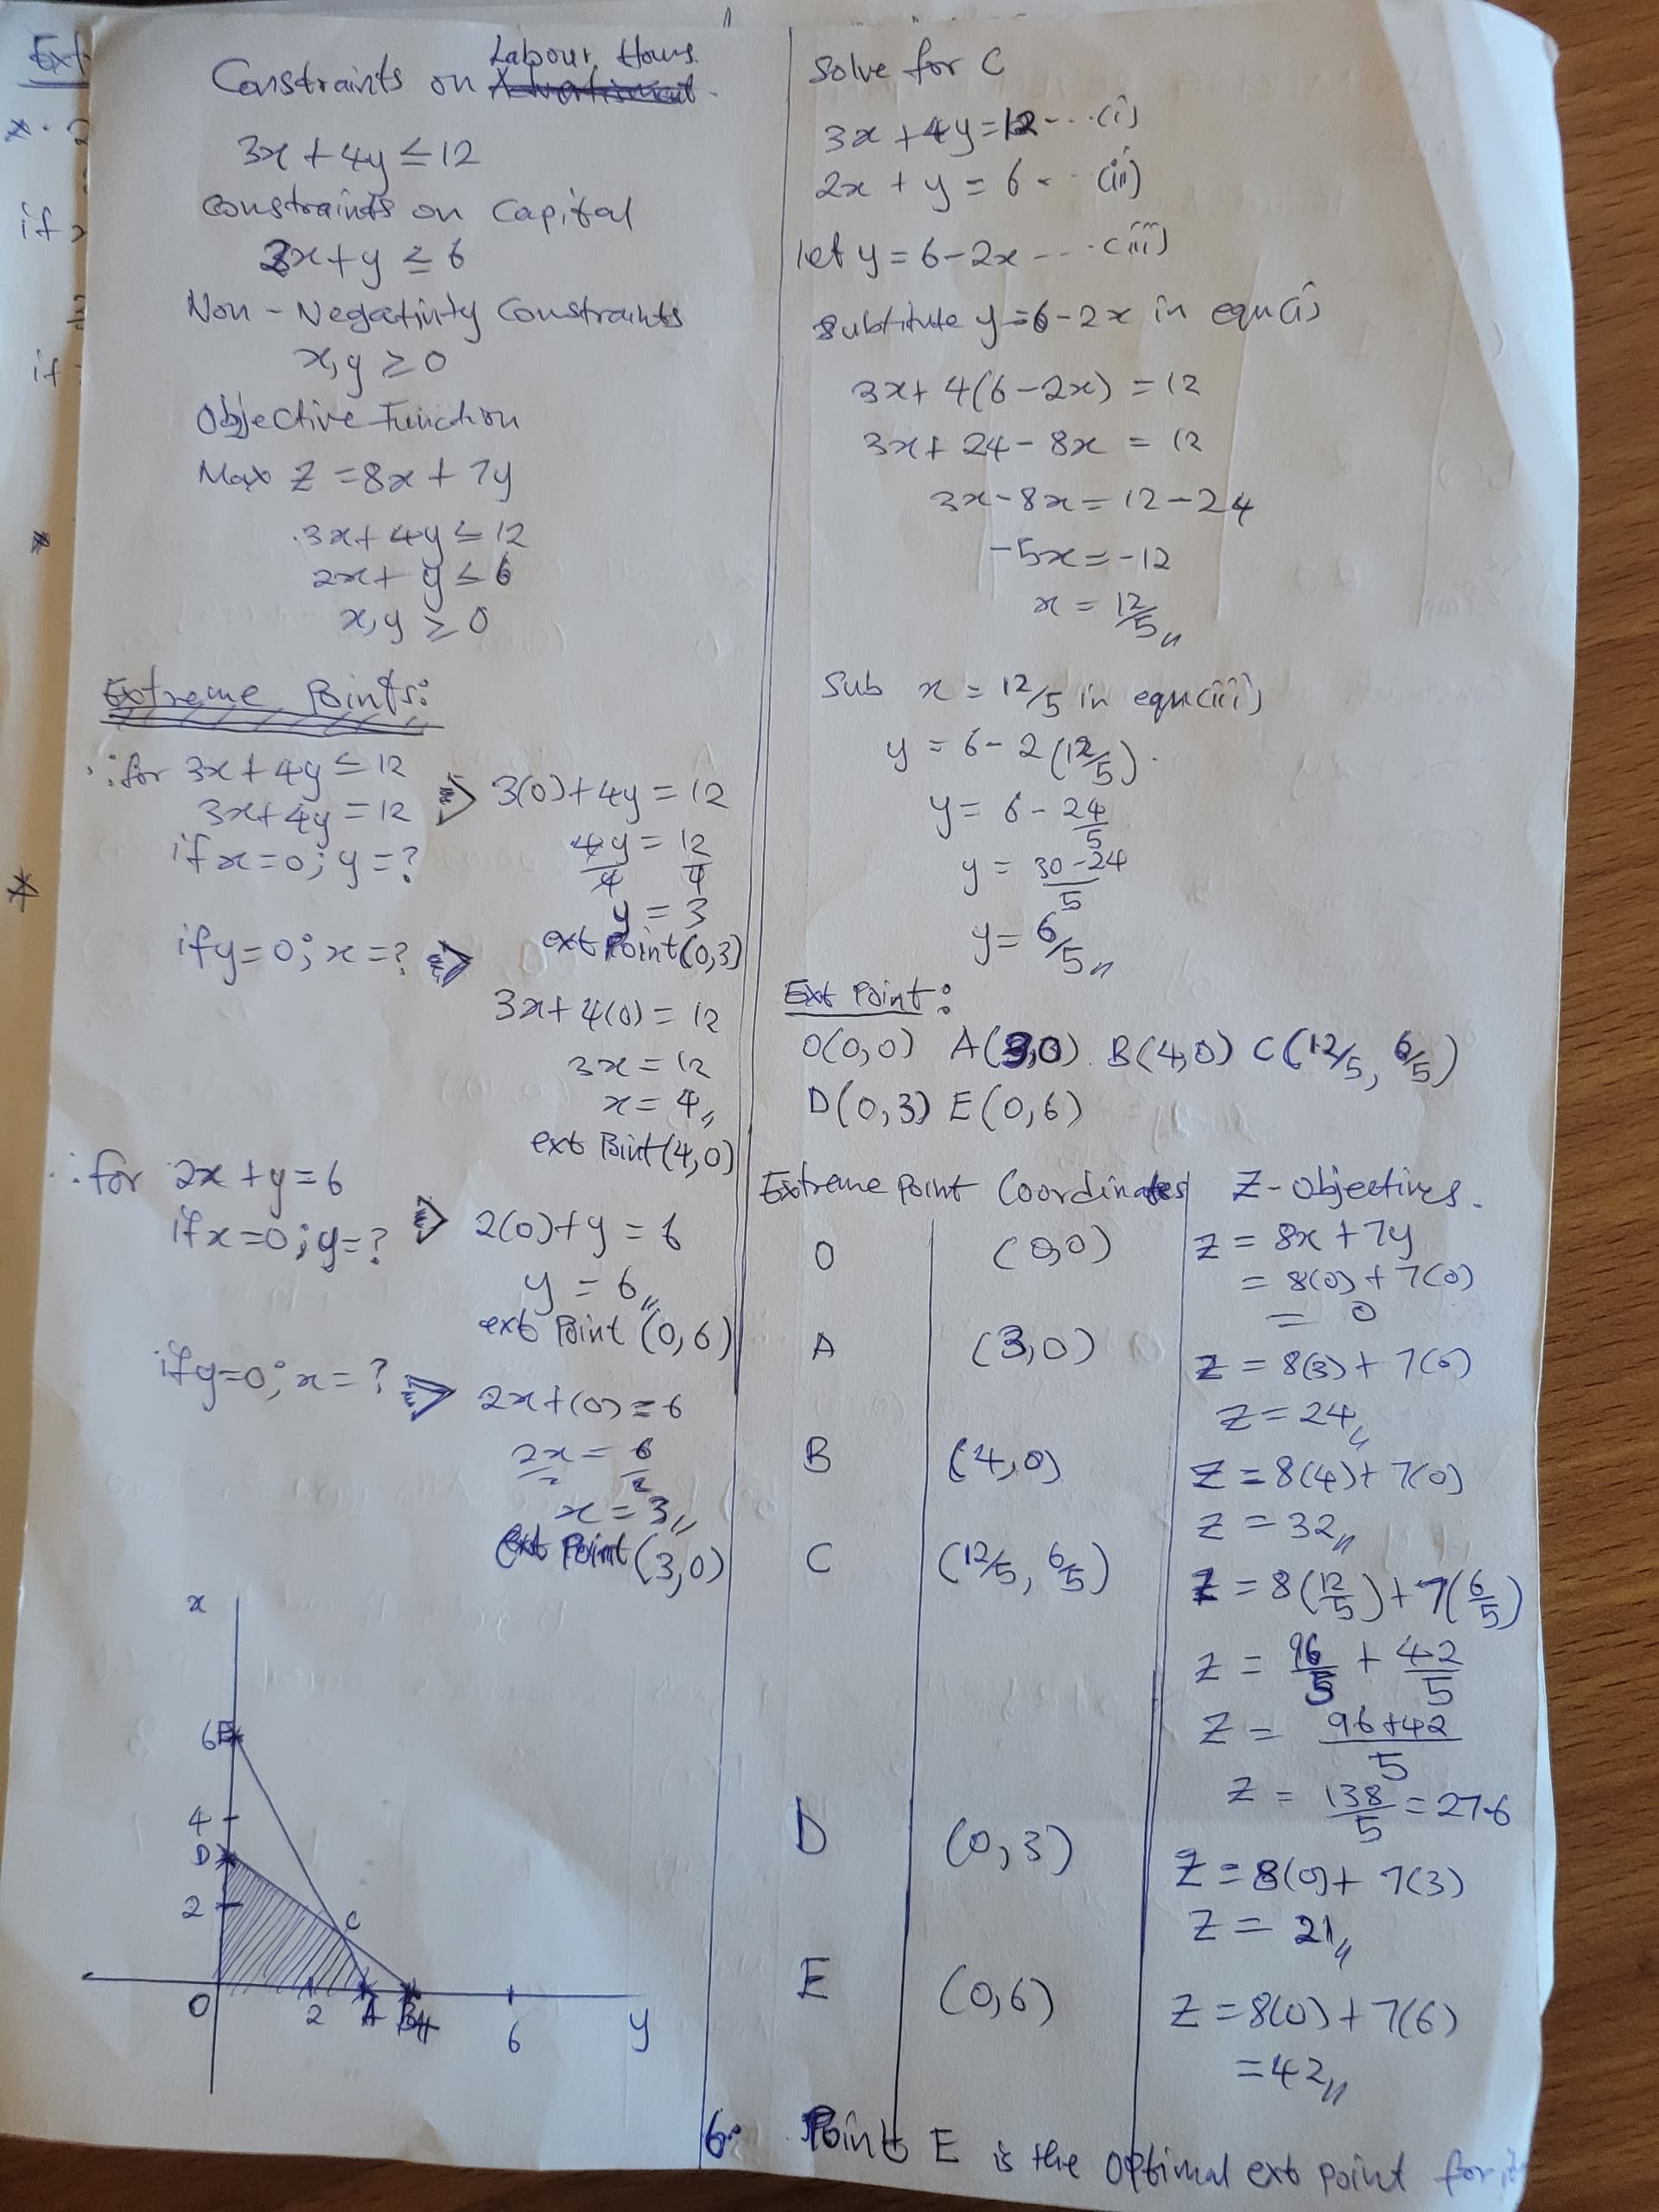 Ext
if
if
Labour Hours.
Constraints on Advertisment.
3x + 4y ≤ 12
Constraints on Capital
2x + y ≤ 6
Non - Negativity Constraints
x, y ≥ 0
Objective Function
Max Z = 8x + 7y
3x + 4y ≤ 12
2x + y ≤ 6
x, y ≥ 0
Extreme Points:
∴ for 3x + 4y ≤ 12
3x + 4y = 12
if x = 0; y = ?
⇒ 3(0) + 4y = 12
4y/4 = 12/4
y = 3
ext Point (0,3)
if y = 0; x = ? ⇒
3x + 4(0) = 12
3x = 12
x = 4,,
ext Point (4,0)
∴ for 2x + y = 6
if x = 0; y = ?
⇒ 2(0) + y = 6
y = 6,,
ext Point (0,6)
if y = 0; x = ? ⇒ 2x + (0) = 6
2x/2 = 6/2
x = 3,,
ext Point (3,0)
x
6 E
4
D
2
C
O 2 A B 4 6 y
Solve for C
3x + 4y = 12 --- (i)
2x + y = 6 - -- (ii)
let y = 6 - 2x --- (iii)
Substitute y = 6 - 2x in equ(i)
3x + 4(6 - 2x) = 12
3x + 24 - 8x = 12
3x - 8x = 12 - 24
-5x = -12
x = 12/5,,
Sub x = 12/5 in equ(iii)
y = 6 - 2(12/5).
y = 6 - 24/5
y = 30 - 24/5
y = 6/5,,
Ext Point:
O(0,0) A(3,0). B(4,0) C(12/5, 6/5)
D(0,3) E(0,6)
Extreme Point Coordinates Z - Objectives.
O (0,0) Z = 8x + 7y
= 8(0) + 7(0)
= 0
A (3,0) Z = 8(3) + 7(0)
Z = 24,,
B (4,0) Z = 8(4) + 7(0)
Z = 32,,
C (12/5, 6/5) Z = 8(12/5) + 7(6/5)
Z = 96/5 + 42/5
Z = 96 + 42/5
Z = 138/5 = 27.6
D (0,3) Z = 8(0) + 7(3)
Z = 21,,
E (0,6) Z = 8(0) + 7(6)
= 42,,
6. Point E is the optimal ext point for